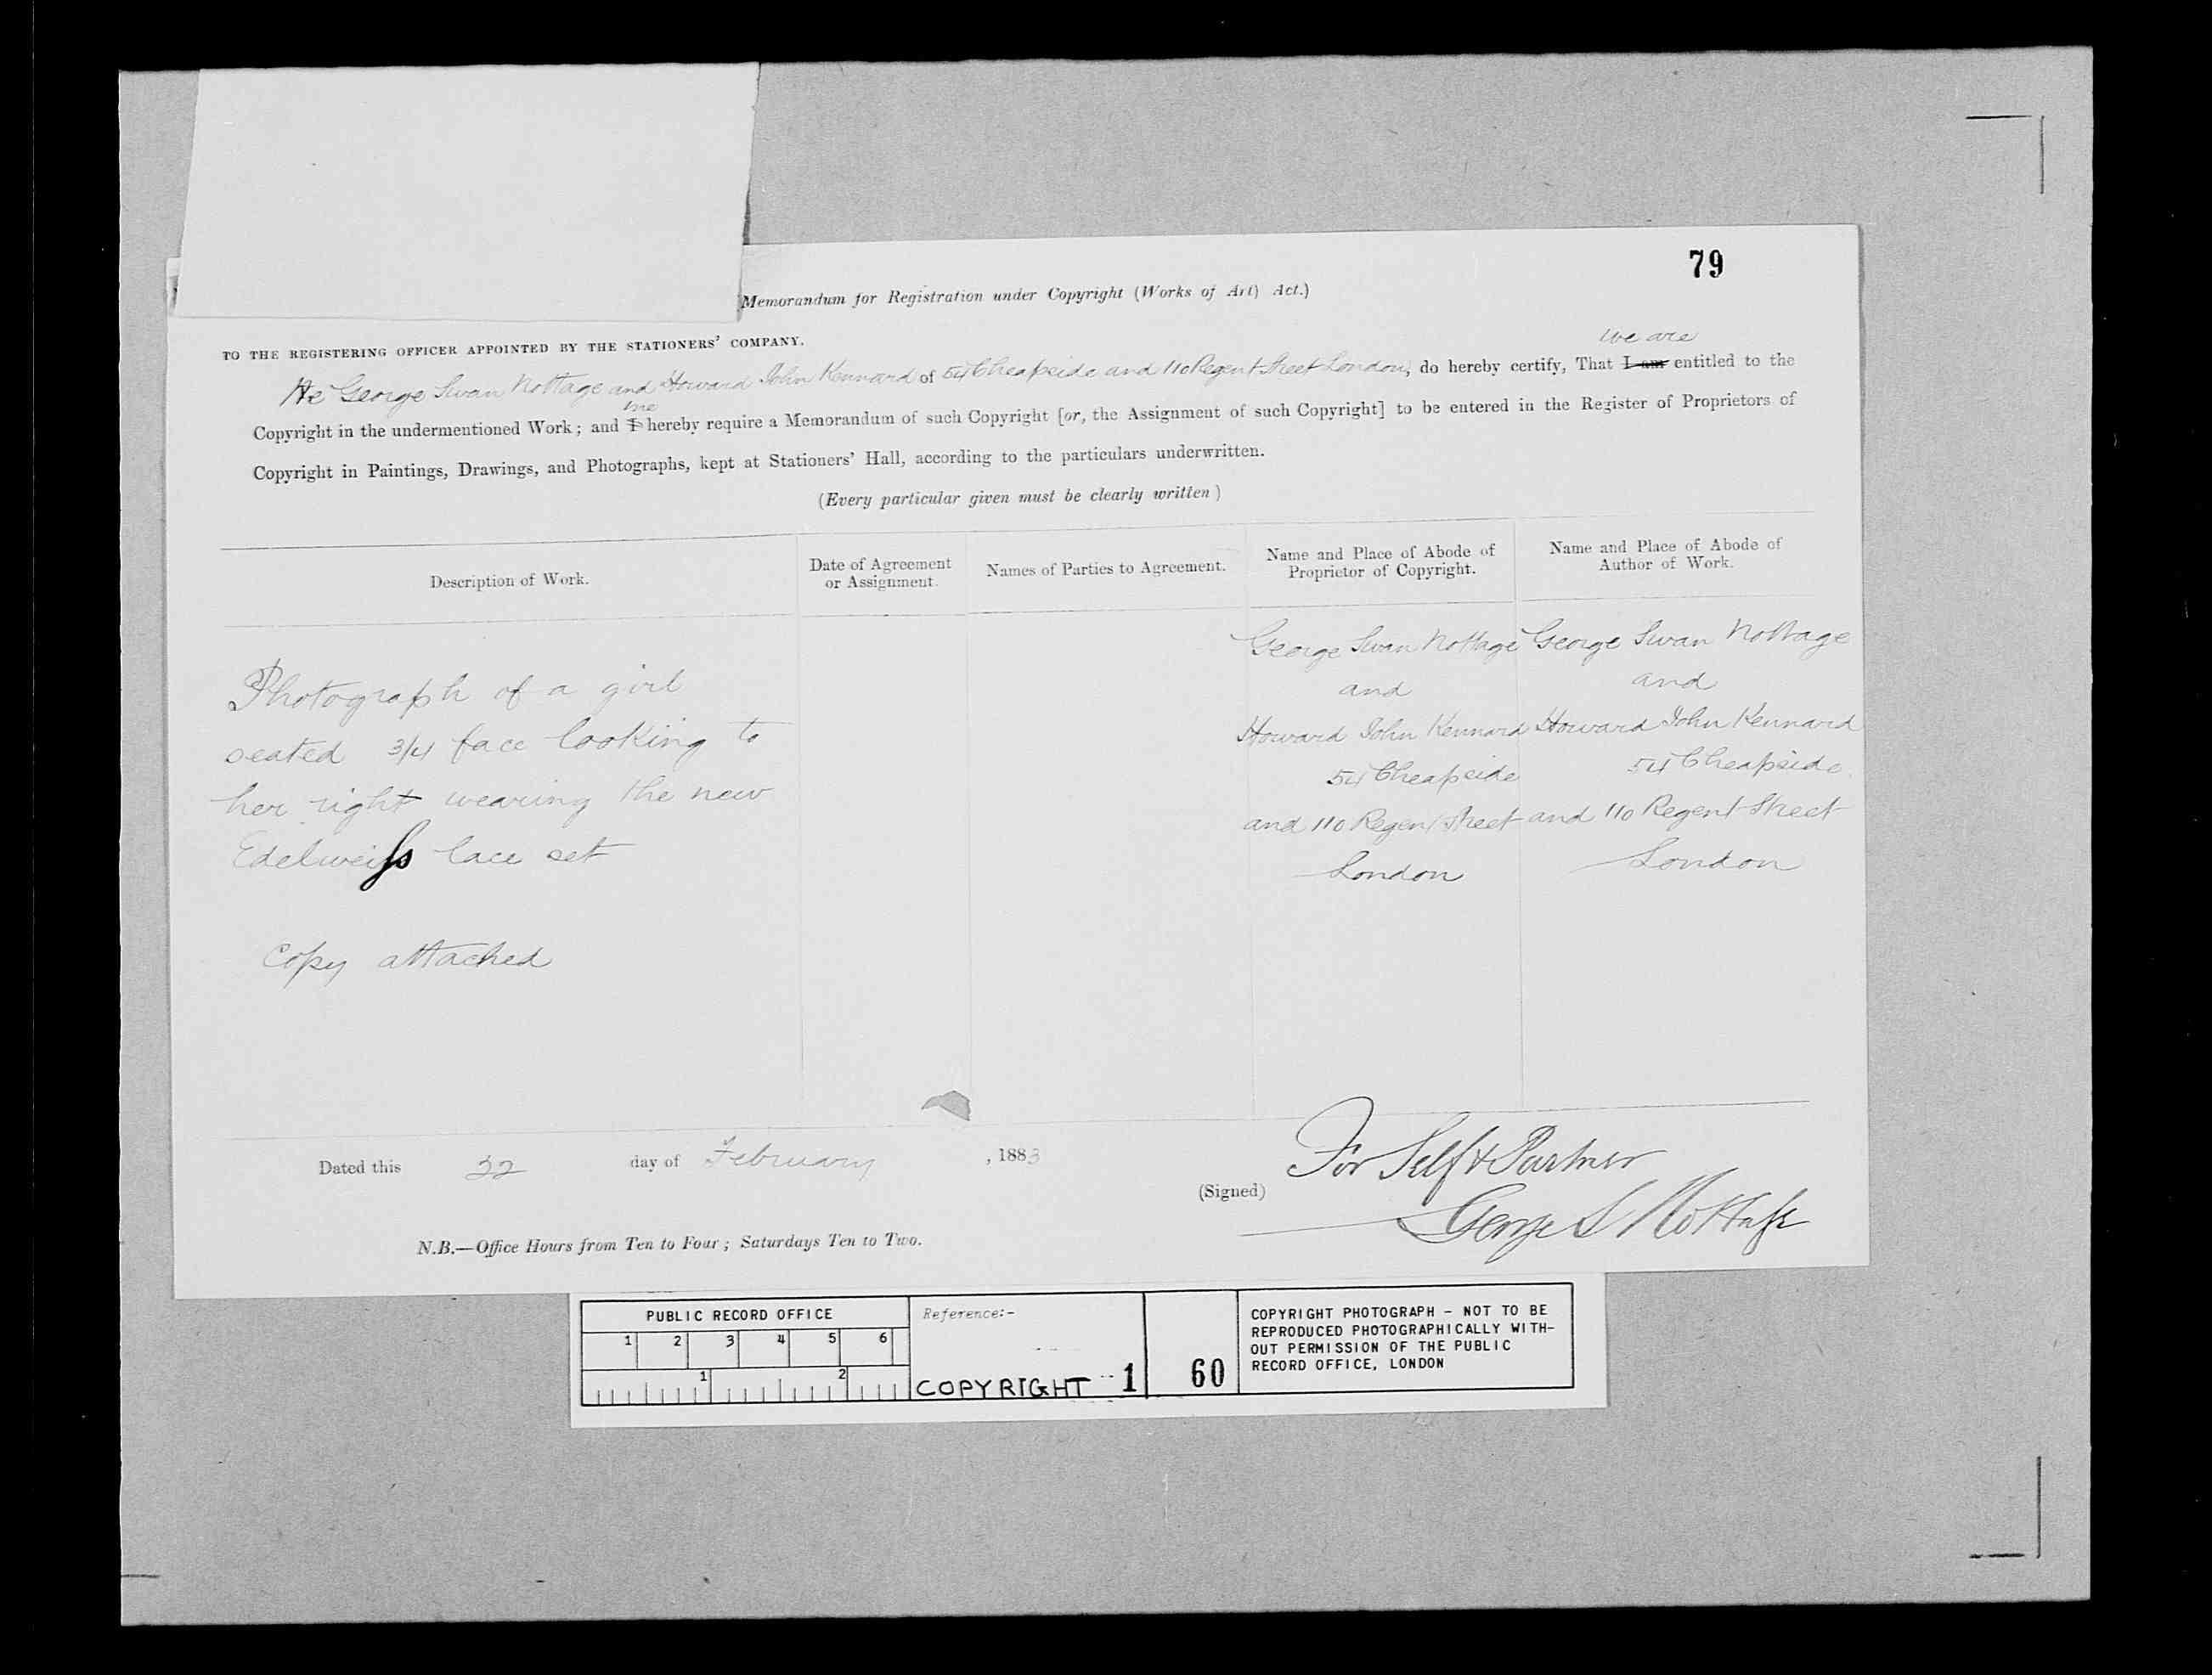 79
Memorandum for Registration under Copyright (Works of Art) Act.)
TO THE REGISTERING OFFICER APPOINTED BY THE STATIONERS' COMPANY.
we are
We George Swan Nottage and Howard John Kennard of 54 Cheapside and 110 Regent Street London, do hereby certify, That I am entitled to the
we
Copyright in the undermentioned Work; and I hereby require a Memorandum of such Copyright [or, the Assignment of such Copyright] to be entered in the Register of Proprietors of
Copyright in Paintings, Drawings, and Photographs, kept at Stationers' Hall, according to the particulars underwritten.
(Every particular given must be clearly written)
Description of Work.
Date of Agreement
or Assignment.
Names of Parties to Agreement.
Name and Place of Abode of
Proprietor of Copyright.
Name and Place of Abode of
Author of Work.
Photograph of a girl
seated 3/4 face looking to
her right wearing the new
Edelweiss lace set
Copy attached
George Swan Nottage
and
Howard John Kennard
54 Cheapside
and 110 Regent Street
London
George Swan Nottage
and
Howard John Kennard
54 Cheapside
and 110 Regent Street
London
Dated this 22 day of February, 1883
(Signed)
For Self & Partner
George S Nottage
N.B.—Office Hours from Ten to Four; Saturdays Ten to Two.
PUBLIC RECORD OFFICE
1 2 3 4 5 6
1 2
Reference:-
COPYRIGHT 1
60
COPYRIGHT PHOTOGRAPH - NOT TO BE
REPRODUCED PHOTOGRAPHICALLY WITH-
OUT PERMISSION OF THE PUBLIC
RECORD OFFICE, LONDON